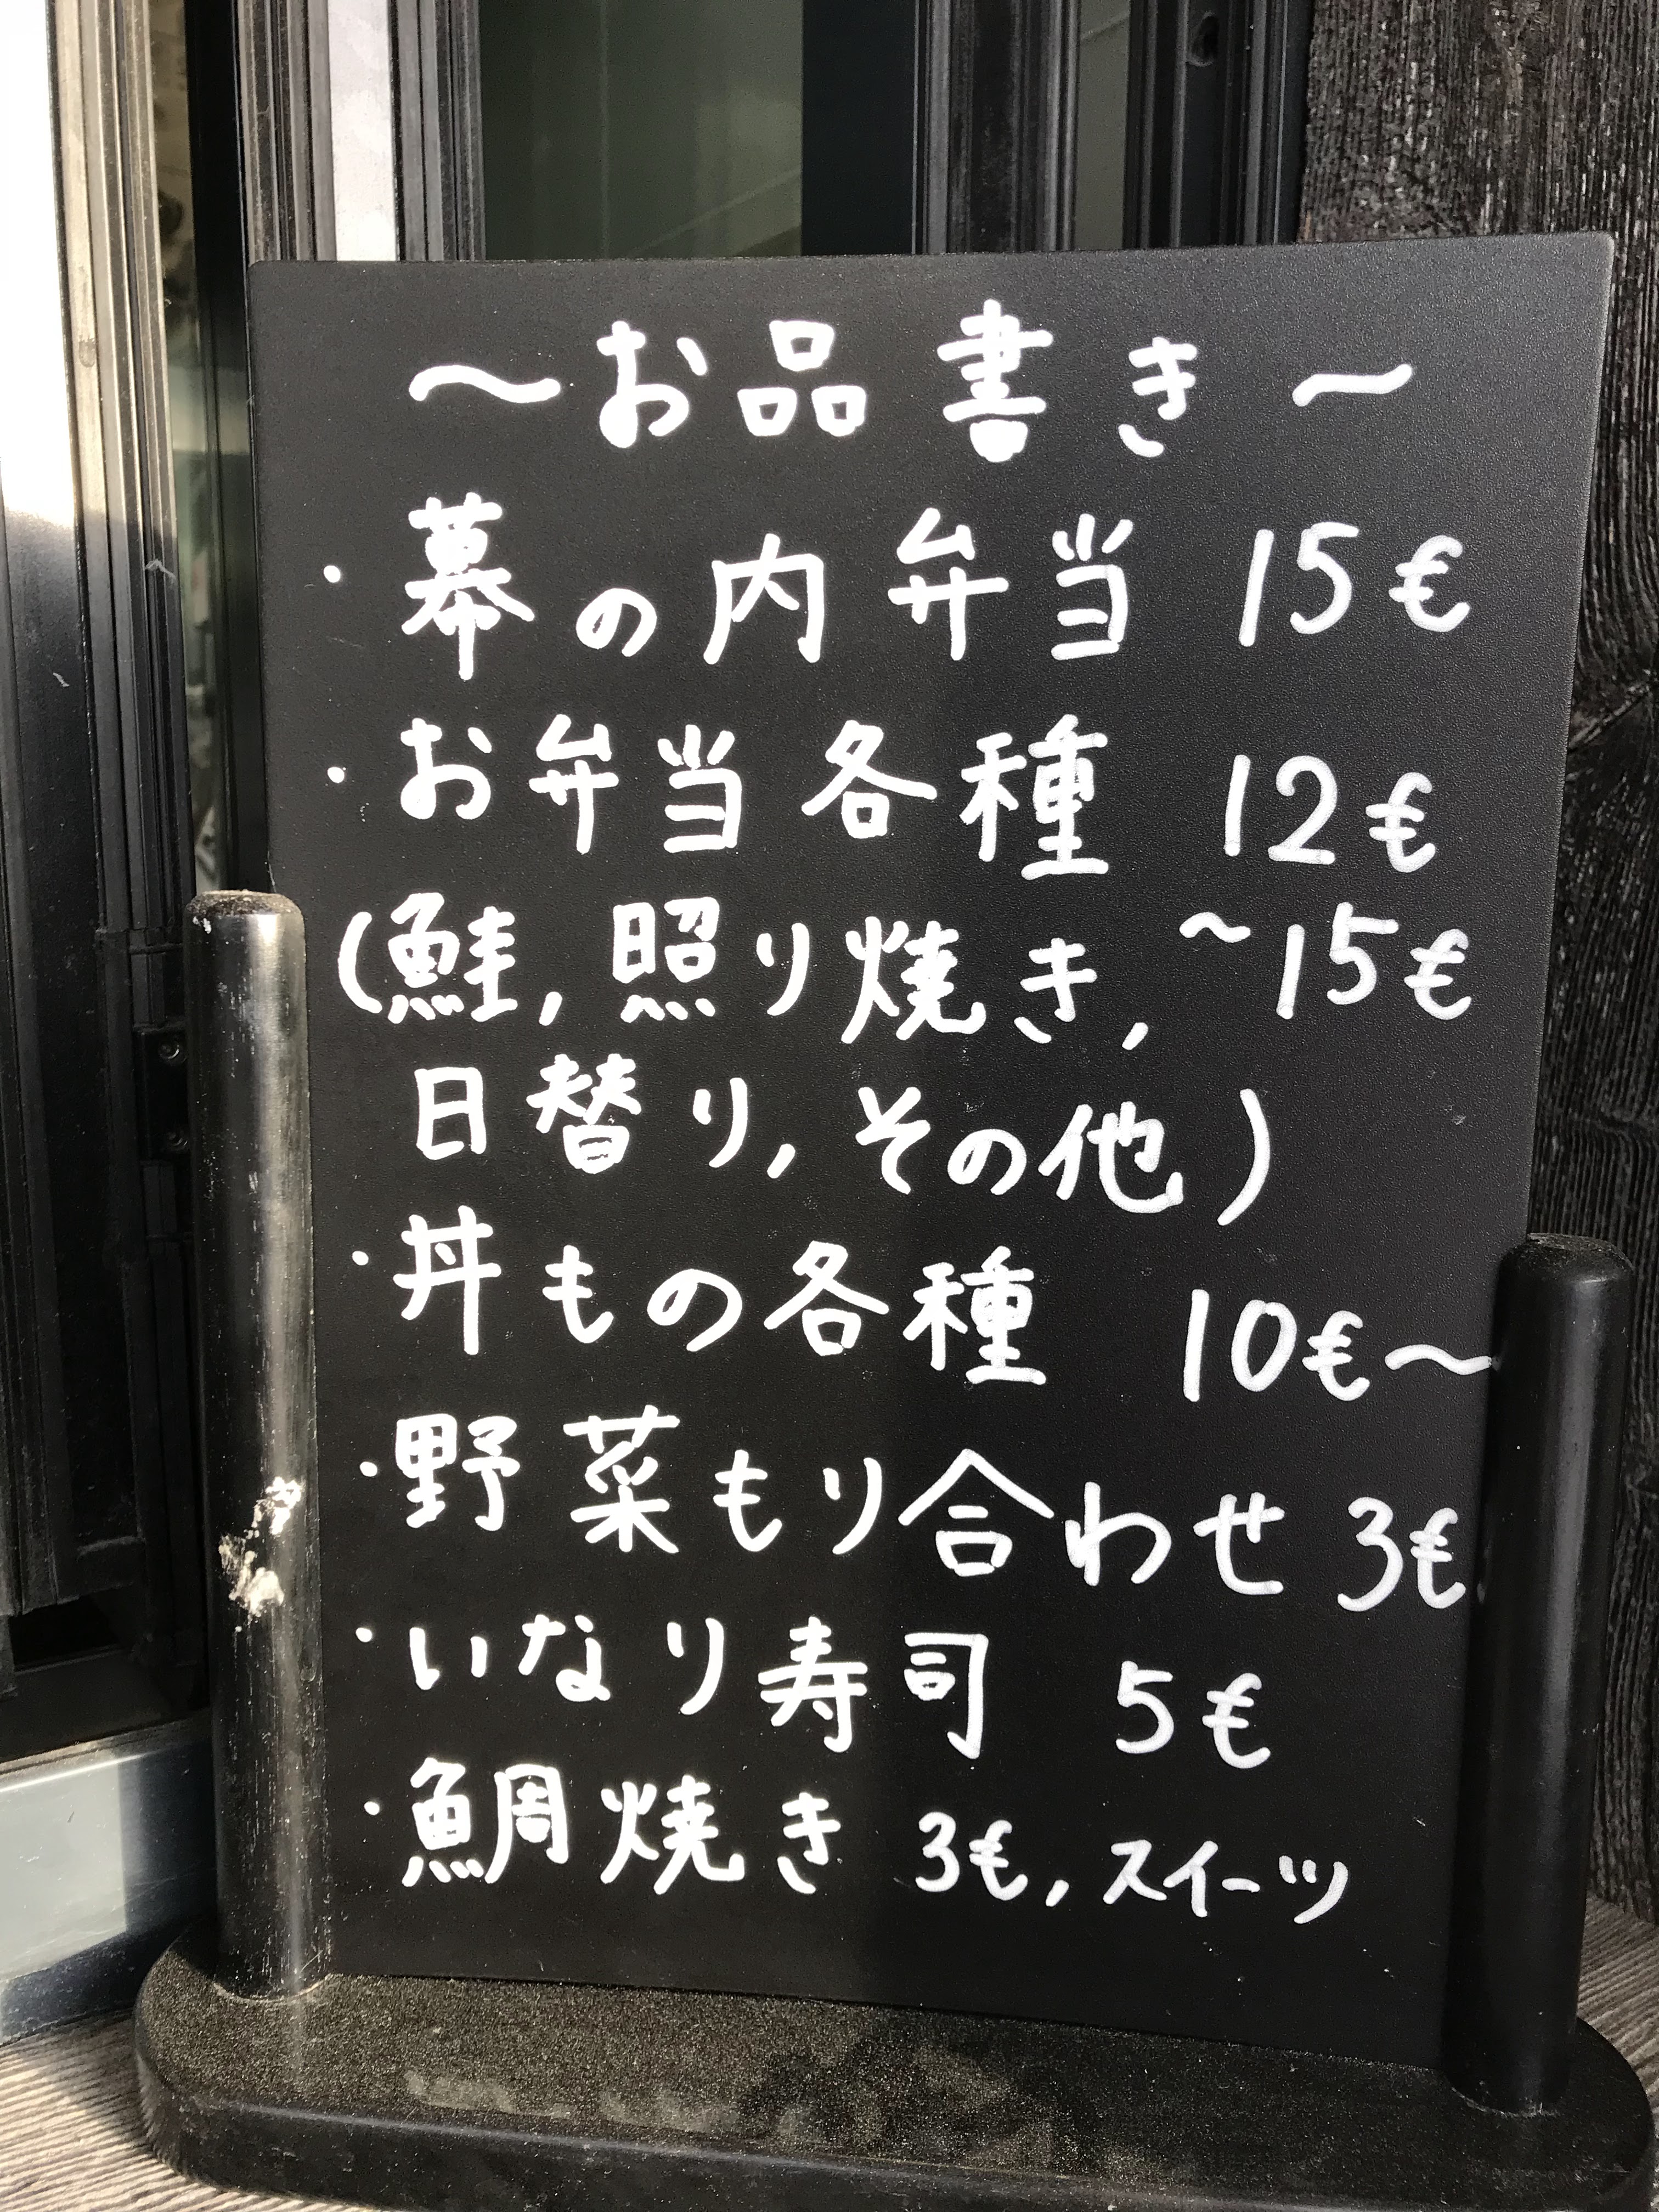 ～お品書き～
・幕の内弁当 15€
・お弁当各種 12€
(鮭, 照り焼き, ~15€
日替り, その他)
・丼もの各種 10€～
・野菜もり合わせ 3€
・いなり寿司 5€
・鯛焼き 3€, スイーツ